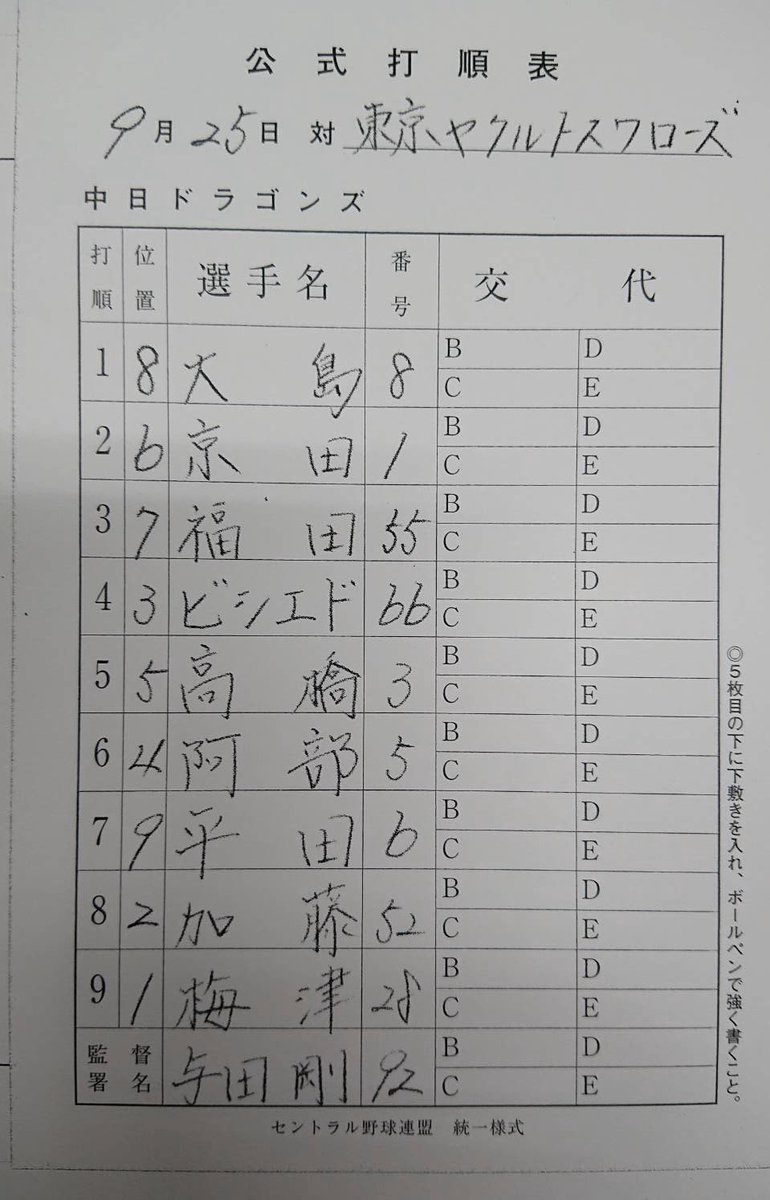 公式打順表
9月25日 対 東京ヤクルトスワローズ
中日ドラゴンズ
打順 位置 選手名 番号 交代
1 8 大島 8 B D
C E
2 6 京田 1 B D
C E
3 7 福田 55 B D
C E
4 3 ビシエド 66 B D
C E
5 5 高橋 3 B D
C E
6 4 阿部 5 B D
C E
7 9 平田 6 B D
C E
8 2 加藤 52 B D
C E
9 1 梅津 28 B D
C E
監督署名 与田剛 92 B D
C E
◎5枚目の下に下敷きを入れ、ボールペンで強く書くこと。
セントラル野球連盟 統一様式